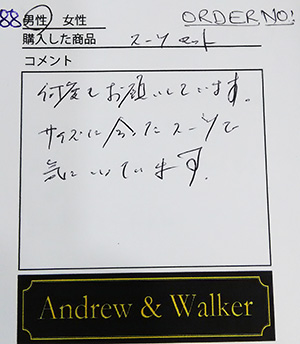 88 男性 女性 ORDER NO!
購入した商品 スーツセット
コメント
何度もお願いしています。
サイズに合ったスーツで
気にいっています。
Andrew & Walker